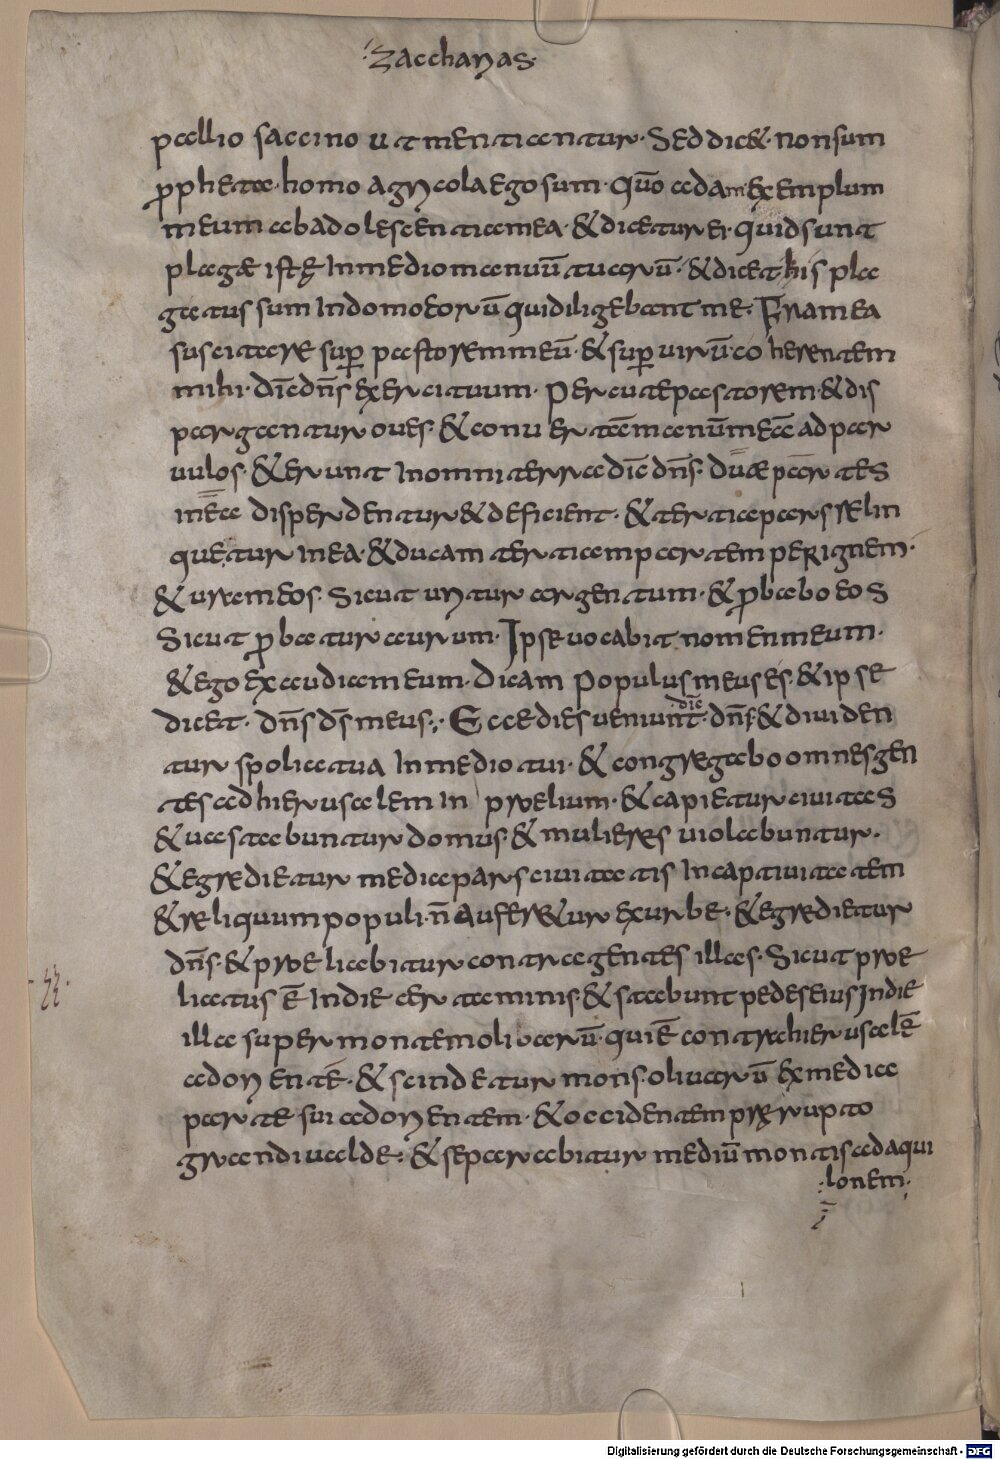 ·Zaccharias·
pallio saccino ut mentiantur· Sed dic&· non sum
ꝓpheta· homo agricola ego sum· Qūo adam exemplum
meum ab adolescentia mea· & dicetur ei· quid sunt
plagæ istę In medio manuū tuarū· & dicet his pla
gatus sum In domo eorū qui diligebant me· Framea
suscitare suꝑ pastorem meū· & suꝑ uirū coherentem
mihi· dīc dn̄s exercituum· Percute pastorem· & dis
pargantur oues· & conuertā manūmeā ad par
uulos· & erunt In omni terra dīc dn̄s· duæ partes
in ea disperdentur & deficient· & tertia pars relin
quetur In ea· & ducam tertiam partem per ignem·
& uram eos· Sicut uritur argentum· & ꝓbabo eos
Sicut ꝓbatur aurum· Ipse uocabit nomen meum·
& ego exaudiam eum· Dicam populus meus es· & ipse
dicet· dn̄s ds̄ meus·;· Ecce dies ueniunt· dīc dn̄s· & diuiden
tur spolia tua In medio tui· & congregabo omnes gen
tes ad hierusalem In prœlium· & capietur ciuitas
& uastabuntur domus· & mulieres uiolabuntur·
& egredietur media pars ciuitatis In captiuitatem
& reliquum populi· n̄ aufer&ur ex urbe· & egredietur
dn̄s· & prœliabitur contra gentes illas· Sicut prœ
liatus ē In die certaminis· & stabunt pedes eius In die
illa super montem oliuarū· qui ē contra hierusalē
ad orientē· & scindetur mons oliuarū ex media
parte sui ad orientem· & occidentem prę rupto
grandi ualde· & separabitur mediū montis ad aqui
·lonem·